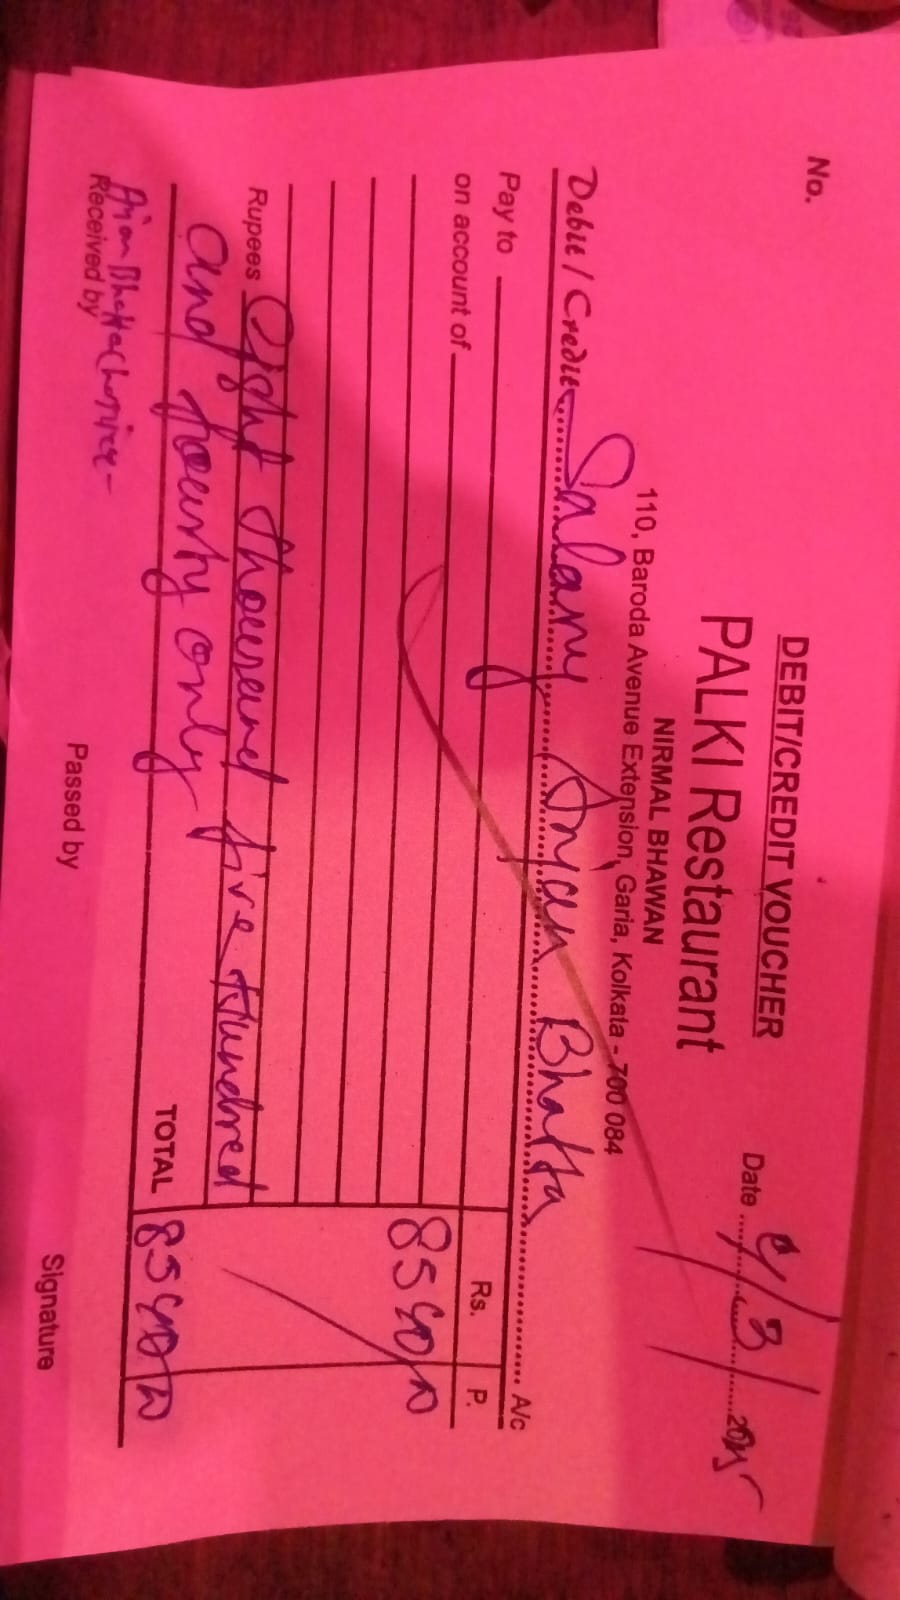 DEBIT/CREDIT VOUCHER
No.
PALKI Restaurant
NIRMAL BHAWAN
110, Baroda Avenue Extension, Garia, Kolkata - 700 084
Date /3/
Debit / Credit Salary Anjan Bhatta A/c
Pay to
Rs. P.
on account of
8540
Rupees Eight thousand five Hundred
and fourty only
TOTAL 8540
Received by
Passed by
Signature